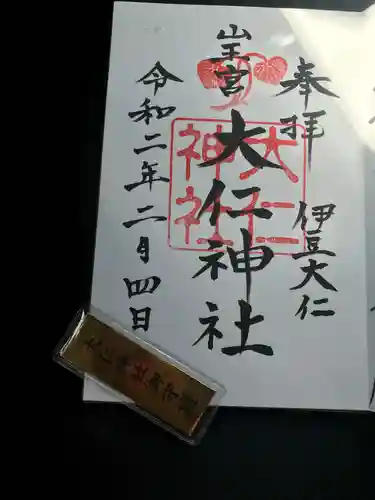 奉拝 伊豆大仁
山王宮
大仁神社
令和二年二月四日
大仁
神社
大仁神社